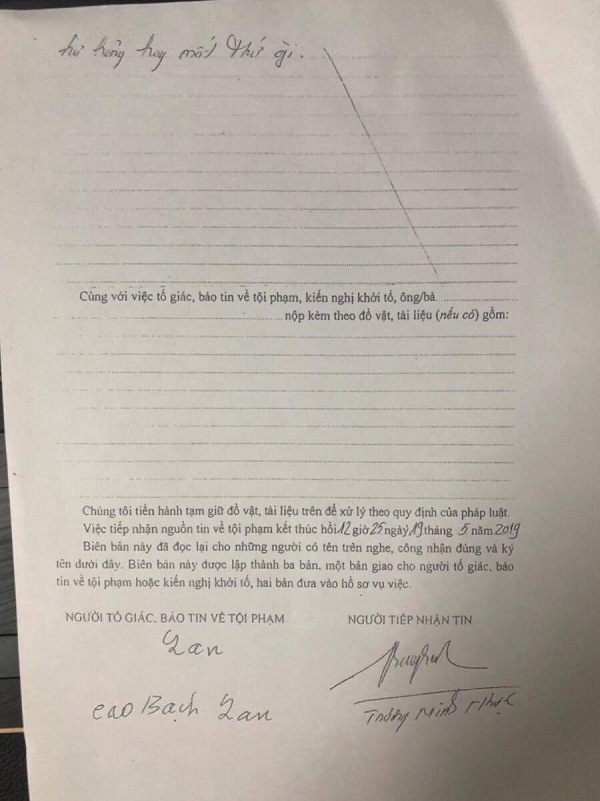 hư hỏng hay mất thứ gì.
Cùng với việc tố giác, báo tin về tội phạm, kiến nghị khởi tố, ông/bà
nộp kèm theo đồ vật, tài liệu (nếu có) gồm:
Chúng tôi tiến hành tạm giữ đồ vật, tài liệu trên để xử lý theo quy định của pháp luật.
Việc tiếp nhận nguồn tin về tội phạm kết thúc hồi 12 giờ 25 ngày 19 tháng 5 năm 2019
Biên bản này đã đọc lại cho những người có tên trên nghe, công nhận đúng và ký
tên dưới đây. Biên bản này được lập thành ba bản, một bản giao cho người tố giác, báo
tin về tội phạm hoặc kiến nghị khởi tố, hai bản đưa vào hồ sơ vụ việc.
NGƯỜI TỐ GIÁC, BÁO TIN VỀ TỘI PHẠM NGƯỜI TIẾP NHẬN TIN
Lan
Cao Bạch Lan Trương Minh